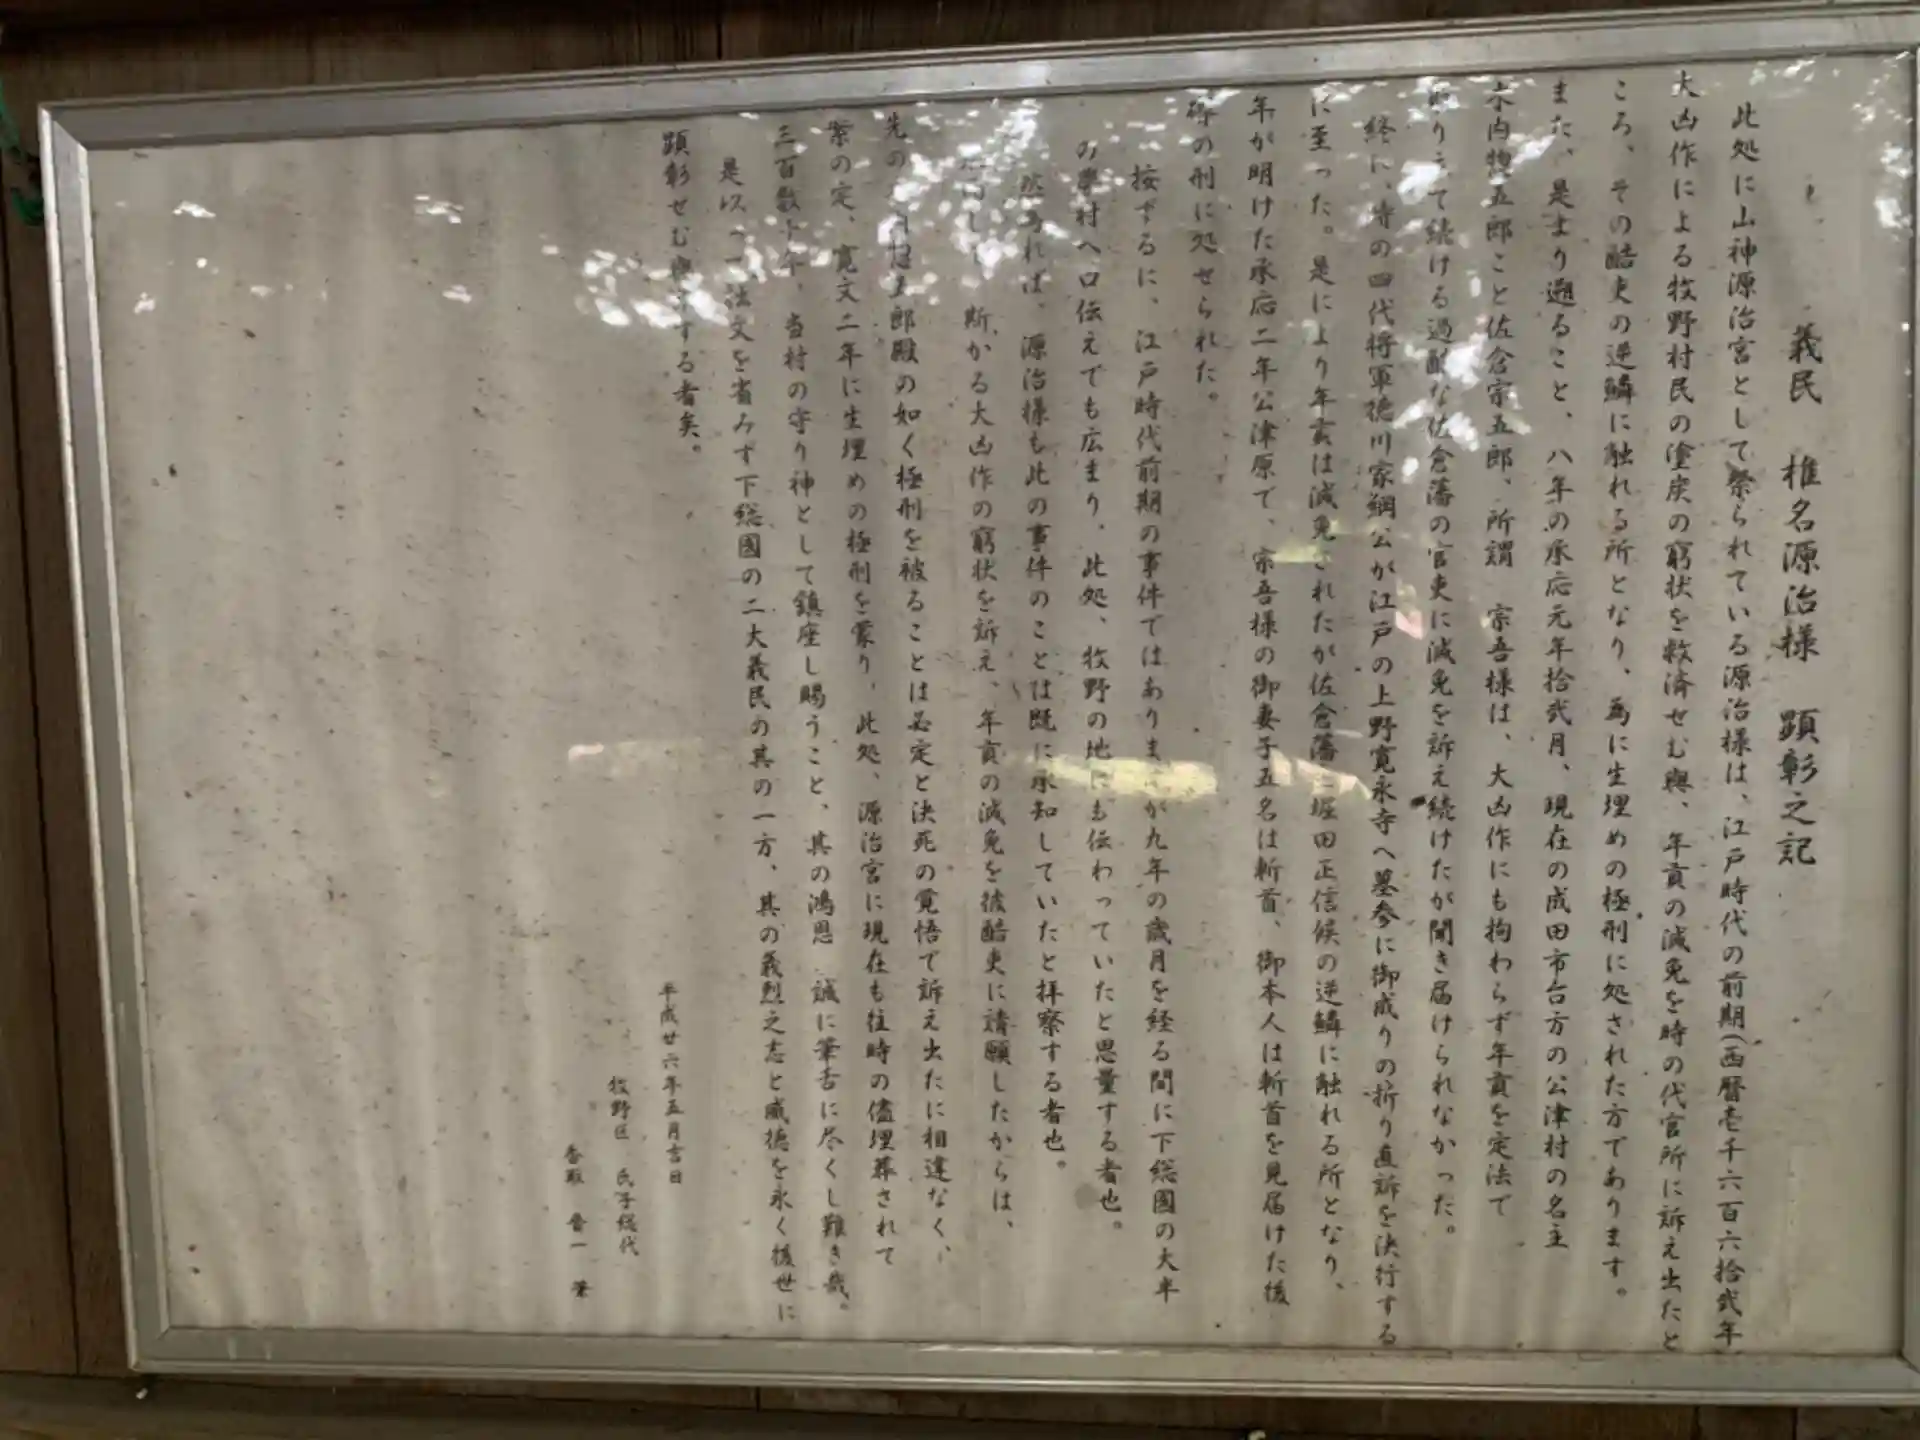 義民 椎名源治様 顕彰之記
此処に山神源治宮として祭られている源治様は、江戸時代の前期(西暦壱千六百六拾弐年)
大凶作による牧野村民の塗炭の窮状を救済せむ與、年貢の減免を時の代官所に訴え出たと
ころ、その酷吏の逆鱗に触れる所となり、為に生埋めの極刑に処された方であります。
また、是より遡ること、八年の承応元年拾弐月、現在の成田市台方の公津村の名主
木内惣五郎こと佐倉宗五郎、所謂 宗吾様は、大凶作にも拘わらず年貢を定法で
取り立て続ける過酷な佐倉藩の官吏に減免を訴え続けたが聞き届けられなかった。
終に、時の四代将軍徳川家綱公が江戸の上野寛永寺へ墓参に御成りの折り直訴を決行する
に至った。是により年貢は減免されたが佐倉藩主堀田正信候の逆鱗に触れる所となり、
年が明けた承応二年公津原で、宗吾様の御妻子五名は斬首、御本人は斬首を見届けた後
磔の刑に処せられた。
按ずるに、江戸時代前期の事件ではありますが九年の歳月を経る間に下総國の大半
の農村へ口伝えでも広まり、此処、牧野の地にも伝わっていたと思量する者也。
然為れば、源治様も此の事件のことは既に承知していたと拝察する者也。
斯かる大凶作の窮状を訴え、年貢の減免を彼酷吏に請願したからは、
先の 五郎殿の如く極刑を被ることは必定と決死の覚悟で訴え出たに相違なく、
案の定、寛文二年に生埋めの極刑を蒙り、此処、源治宮に現在も往時の儘埋葬されて
三百数十年、当村の守り神として鎮座し賜うこと、其の鴻恩 誠に筆舌に尽くし難き哉。
是以 法文を省みず下総國の二大義民の其の一方、其の義烈之志と威徳を永く後世に
顕彰せむ與 する者矣。
平成廿六年五月吉日
牧野区 氏子総代
香取 一 筆